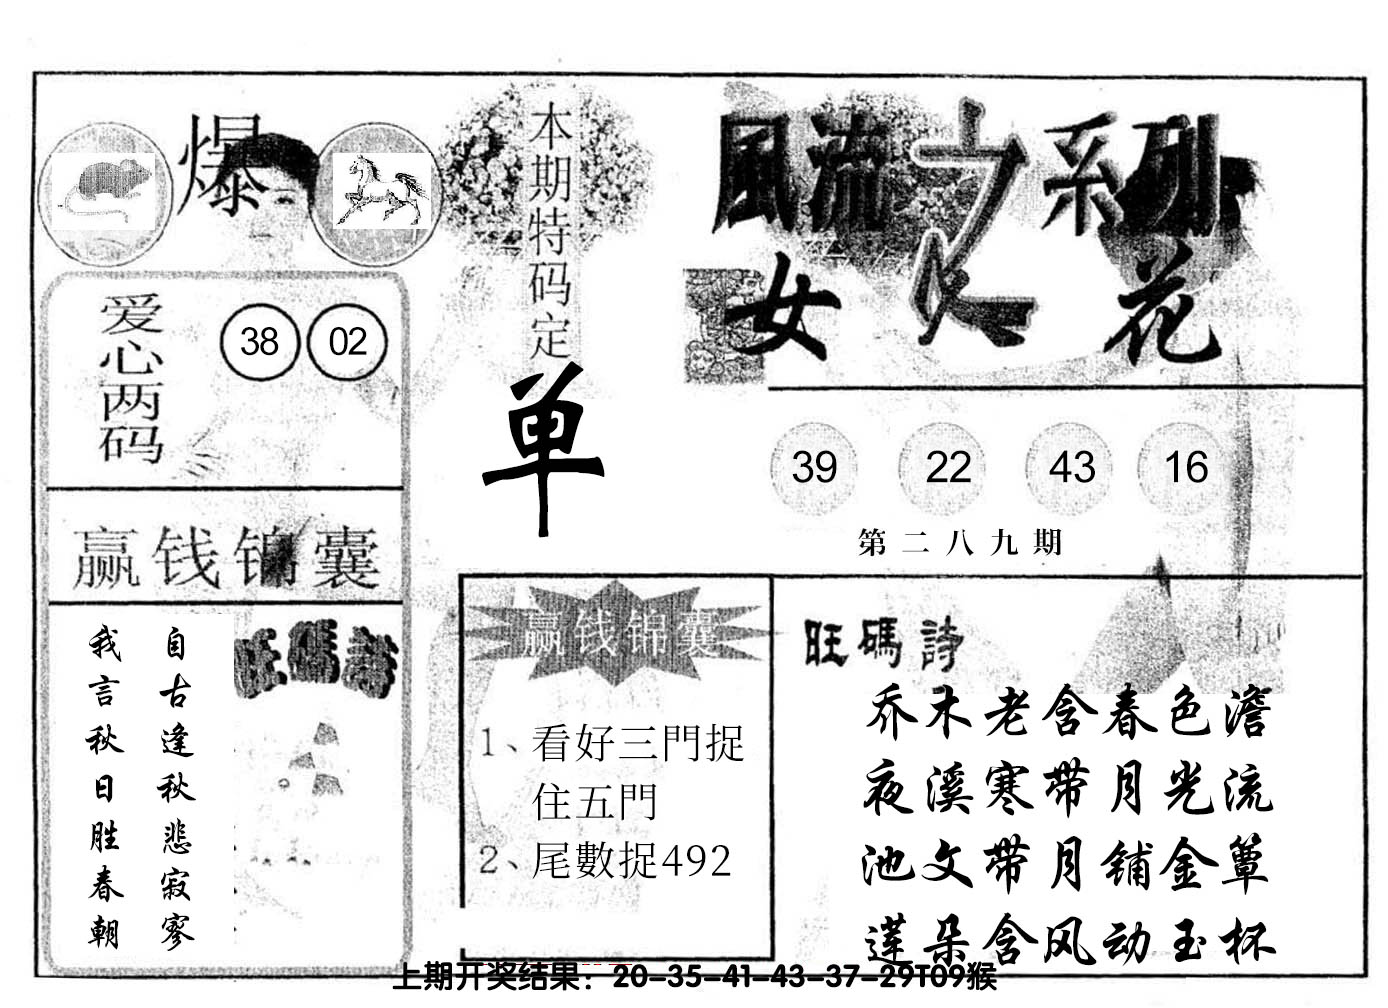 爆
本期特码定
单
風流之系列
女人花
爱心两码
38 02
39 22 43 16
第二八九期
赢钱锦囊
自古逢秋悲寂寥
我言秋日胜春朝
旺碼詩
赢钱锦囊
1、看好三門捉
住五門
2、尾數捉492
旺碼詩
乔木老含春色澹
夜溪寒带月光流
池文带月铺金簟
莲朵含风动玉杯
上期开奖结果：20-35-41-43-37-29T09猴